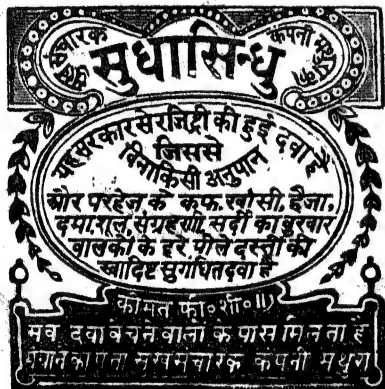 सुख संचारक
सुधासिन्धु
कंपनी मथुरा का
यह सरकार से रजिष्ट्री की हुई दवा है
जिससे
बिना किसी अनुपान
और परहेज के कफ, खांसी, हैजा,
दमा, शूल, संग्रहणी, सर्दी का बुखार
बालकों के हरे पीले दस्तों की
स्वादिष्ट सुगंधित दवा है
कीमत फी० शी० ॥)
सब दवा बेचने वालों के पास मिलता है
पता सुख संचारक कंपनी मथुरा